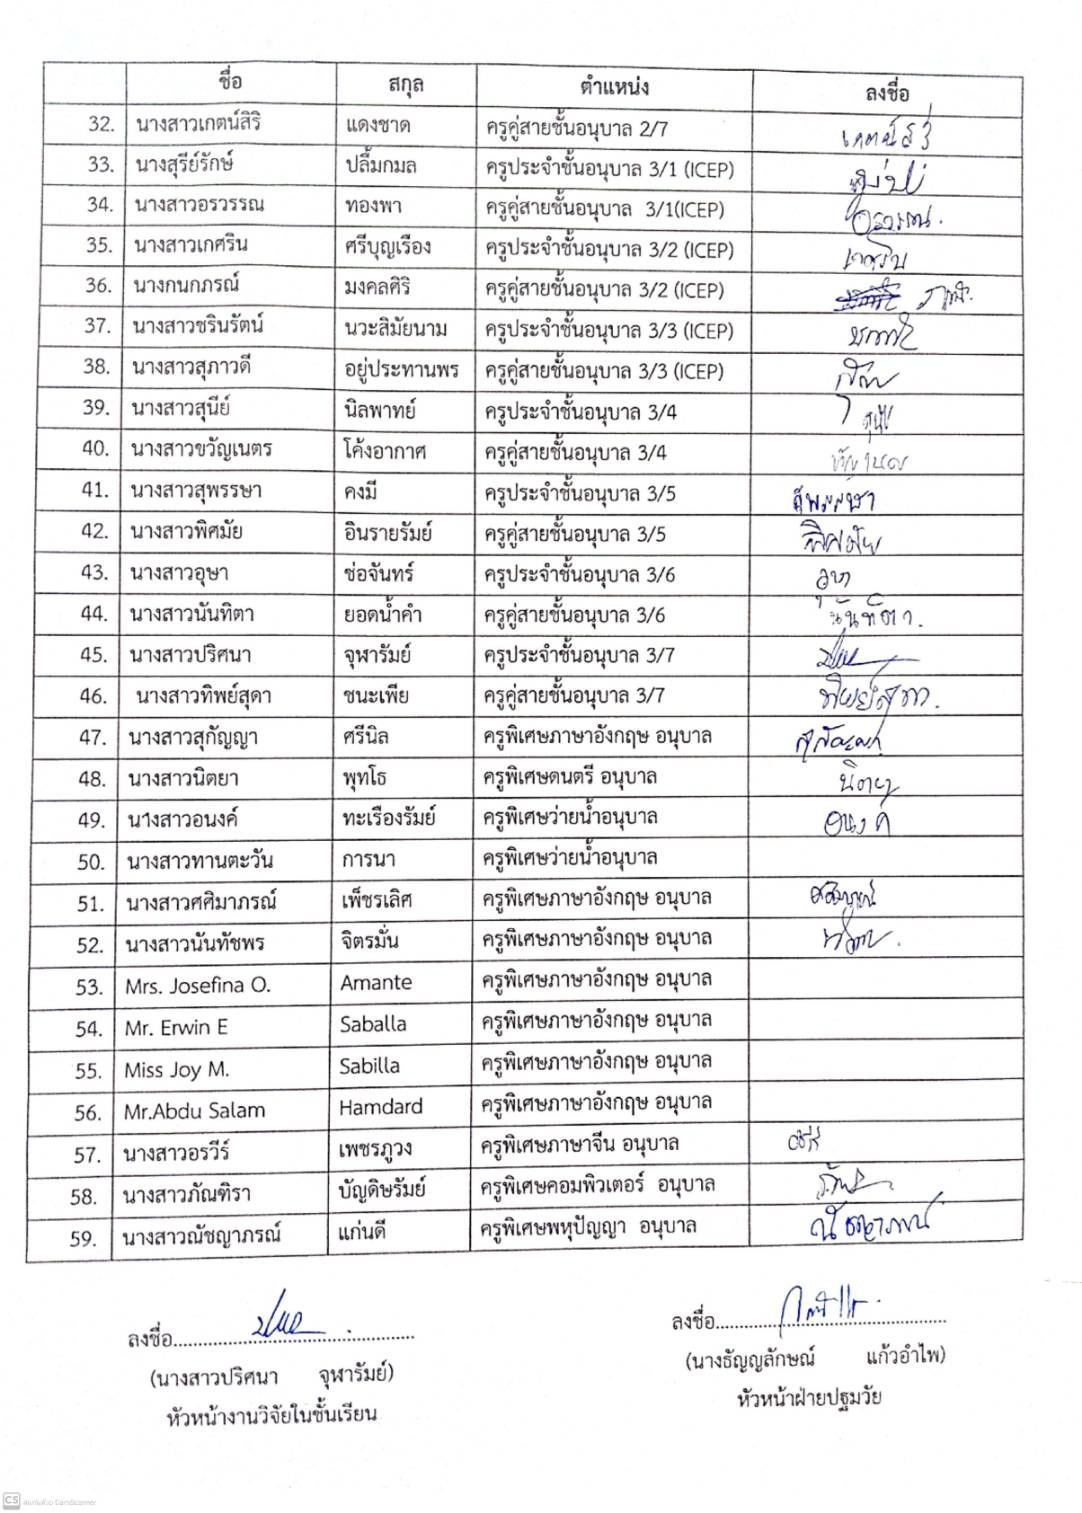 ชื่อ สกุล ตำแหน่ง ลงชื่อ
32. นางสาวเกตน์สิริ แดงชาด ครูคู่สายชั้นอนุบาล 2/7 เกตน์สิริ
33. นางสุรีย์รักษ์ ปลื้มกมล ครูประจำชั้นอนุบาล 3/1 (ICEP)
34. นางสาวอรวรรณ ทองพา ครูคู่สายชั้นอนุบาล 3/1(ICEP) อรวรรณ
35. นางสาวเกศริน ศรีบุญเรือง ครูประจำชั้นอนุบาล 3/2 (ICEP) เกศริน
36. นางกนกภรณ์ มงคลศิริ ครูคู่สายชั้นอนุบาล 3/2 (ICEP)
37. นางสาวชรินรัตน์ นวะสิมัยนาม ครูประจำชั้นอนุบาล 3/3 (ICEP)
38. นางสาวสุภาวดี อยู่ประทานพร ครูคู่สายชั้นอนุบาล 3/3 (ICEP)
39. นางสาวสุนีย์ นิลพาทย์ ครูประจำชั้นอนุบาล 3/4
40. นางสาวขวัญเนตร โค้งอากาศ ครูคู่สายชั้นอนุบาล 3/4
41. นางสาวสุพรรษา คงมี ครูประจำชั้นอนุบาล 3/5 สุพรรษา
42. นางสาวพิศมัย อินรายรัมย์ ครูคู่สายชั้นอนุบาล 3/5 พิศมัย
43. นางสาวอุษา ช่อจันทร์ ครูประจำชั้นอนุบาล 3/6 อุษา
44. นางสาวนันทิตา ยอดน้ำคำ ครูคู่สายชั้นอนุบาล 3/6 นันทิตา.
45. นางสาวปริศนา จุฬารัมย์ ครูประจำชั้นอนุบาล 3/7
46. นางสาวทิพย์สุดา ชนะเพีย ครูคู่สายชั้นอนุบาล 3/7 ทิพย์สุดา.
47. นางสาวสุกัญญา ศรีนิล ครูพิเศษภาษาอังกฤษ อนุบาล สุกัญญา
48. นางสาวนิตยา พุทโธ ครูพิเศษดนตรี อนุบาล นิตยา
49. นาสาวอนงค์ ทะเรืองรัมย์ ครูพิเศษว่ายน้ำอนุบาล อนงค์
50. นางสาวทานตะวัน การนา ครูพิเศษว่ายน้ำอนุบาล
51. นางสาวศศิมาภรณ์ เพ็ชรเลิศ ครูพิเศษภาษาอังกฤษ อนุบาล ศศิมาภรณ์
52. นางสาวนันทัชพร จิตรมั่น ครูพิเศษภาษาอังกฤษ อนุบาล
53. Mrs. Josefina O. Amante ครูพิเศษภาษาอังกฤษ อนุบาล
54. Mr. Erwin E Saballa ครูพิเศษภาษาอังกฤษ อนุบาล
55. Miss Joy M. Sabilla ครูพิเศษภาษาอังกฤษ อนุบาล
56. Mr.Abdu Salam Hamdard ครูพิเศษภาษาอังกฤษ อนุบาล
57. นางสาวอรวีร์ เพชรภูวง ครูพิเศษภาษาจีน อนุบาล
58. นางสาวภัณฑิรา บัญดิษรัมย์ ครูพิเศษคอมพิวเตอร์ อนุบาล
59. นางสาวณัชญาภรณ์ แก่นดี ครูพิเศษพหุปัญญา อนุบาล ณัชญาภรณ์
ลงชื่อ........................................ ลงชื่อ........................................
(นางสาวปริศนา จุฬารัมย์) (นางธัญญลักษณ์ แก้วอำไพ)
หัวหน้างานวิจัยในชั้นเรียน หัวหน้าฝ่ายปฐมวัย
CS สแกนด้วย CamScanner